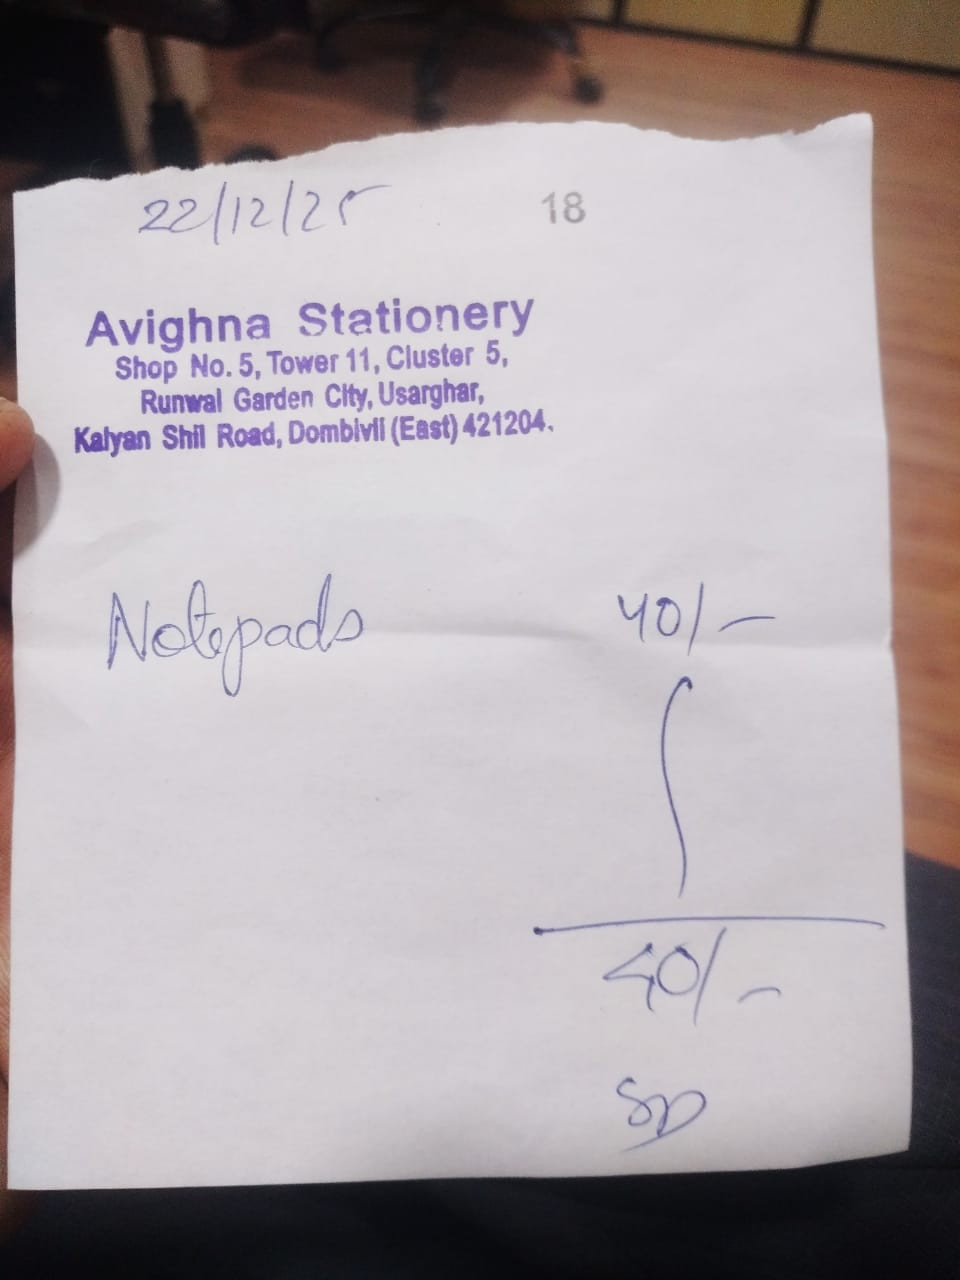 22/12/25 18
Avighna Stationery
Shop No. 5, Tower 11, Cluster 5,
Runwal Garden City, Usarghar,
Kalyan Shil Road, Dombivli (East) 421204.
Notepads 40/-
40/-
SD